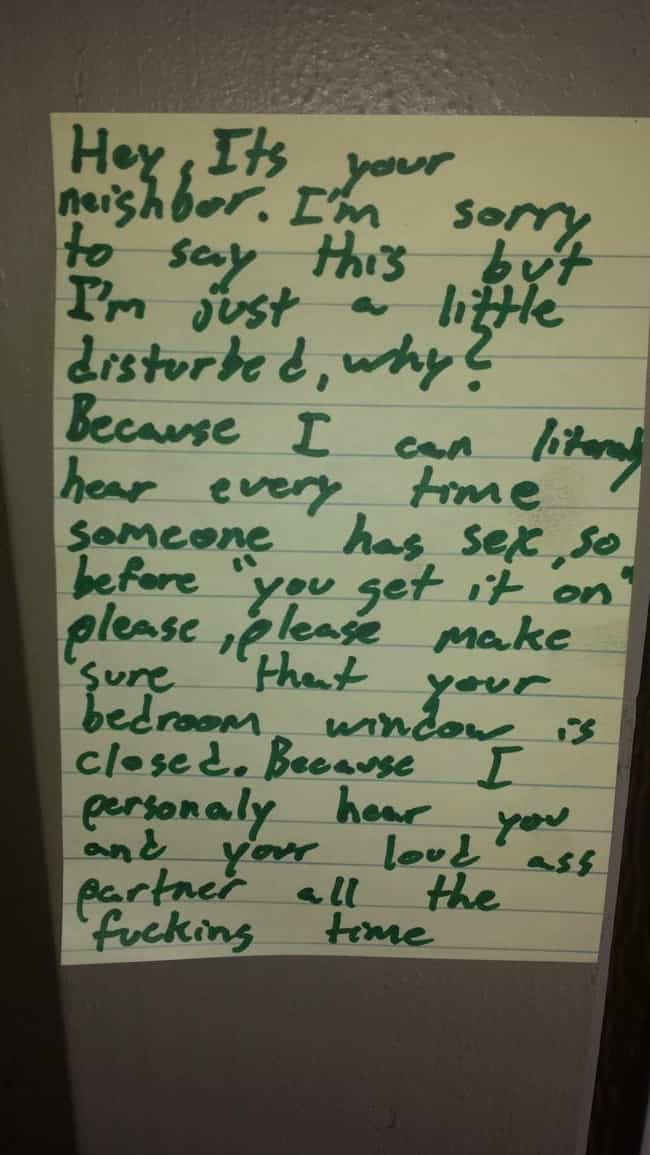 Hey, Its your
neighbor. I'm sorry
to say this but
I'm just a little
disturbed, why?
Because I can literaly
hear every time
someone has sex, so
before "you get it on"
please, please make
sure that your
bedroom window is
closed. Because I
personaly hear you
and your loud ass
partner all the
fucking time